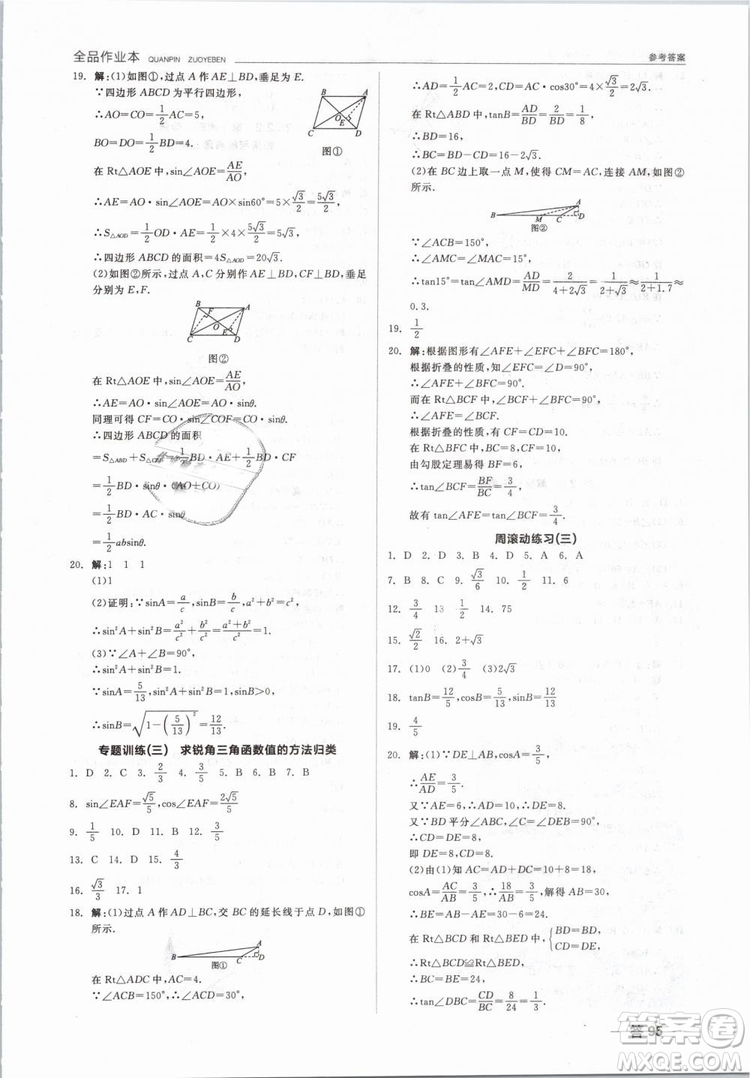 全品作业本 QUANPIN ZUOYEBEN
参考答案
19. 解:(1)如图①,过点 A 作 AE⊥BD,垂足为 E.
∵四边形 ABCD 为平行四边形,
∴AO=CO=1/2 AC=5,
BO=DO=1/2 BD=4.
B A O E C D
图①
在 Rt△AOE 中,sin∠AOE=AE/AO,
∴AE=AO·sin∠AOE=AO×sin60°=5×√3/2=5√3/2,
∴S△AOD=1/2 OD·AE=1/2×4×5√3/2=5√3,
∴四边形 ABCD 的面积=4S△AOD=20√3.
(2)如图②所示,过点 A,C 分别作 AE⊥BD,CF⊥BD,
垂足分别为 E,F.
B A F O E C D
图②
在 Rt△AOE 中,sin∠AOE=AE/AO,
∴AE=AO·sin∠AOE=AO·sinθ.
同理可得 CF=CO·sin∠COF=CO·sinθ.
∴四边形 ABCD 的面积
=S△ABD+S△CBD=1/2 BD·AE+1/2 BD·CF
=1/2 BD·sinθ·(AO+CO)
=1/2 BD·AC·sinθ
=1/2 absinθ.
20. 解:1 1 1
(1)1
(2)证明:∵sinA=a/c,sinB=b/c,a²+b²=c²,
∴sin²A+sin²B=a²/c²+b²/c²=(a²+b²)/c²=c²/c²=1.
(3)∵∠A+∠B=90°,
∴sin²A+sin²B=1.
∵sinA=5/13,sin²A+sin²B=1,sinB>0,
∴sinB=√(1-(5/13)²)=12/13.
专题训练(三) 求锐角三角函数值的方法归类
1. D 2. C 3. C 4. 2/3 5. 3/5 6. B 7. B
8. sin∠EAF=√5/5,cos∠EAF=2√5/5
9. 1/5 10. D 11. A 12. D
13. C 14. D 15. 4/3
16. √3/3 17. 1
18. 解:(1)过点 A 作 AD⊥BC,交 BC 的延长线于点 D,如图①
所示.
A B C D
图①
在 Rt△ADC 中,AC=4.
∵∠ACB=150°,∴∠ACD=30°,
∴AD=1/2 AC=2,CD=AC·cos30°=4×√3/2=2√3.
在 Rt△ABD 中,tanB=AD/BD=2/BD=1/8,
∴BD=16,
∴BC=BD-CD=16-2√3.
(2)在 BC 边上取一点 M,使得 CM=AC,连接 AM,如图②
所示.
A B M C D
图②
∵∠ACB=150°,
∴∠AMC=∠MAC=15°,
∴tan15°=tan∠AMD=AD/MD=2/(4+2√3)=1/(2+√3)≈1/(2+1.7)≈
0.3.
19. 1/2
20. 解:根据图形有∠AFE+∠EFC+∠BFC=180°,
根据折叠的性质,知∠EFC=∠EDC=90°,
∴∠AFE+∠BFC=90°.
而在 Rt△BCF 中,有∠BCF+∠BFC=90°,
∴∠AFE=∠BCF.
根据折叠的性质,得 CF=CD=10.
在 Rt△BFC 中,BC=8,CF=CD=10,
由勾股定理易得 BF=6,
∴tan∠BCF=BF/BC=3/4,
故有 tan∠AFE=tan∠BCF=3/4.
周滚动练习(三)
1. D 2. D 3. C 4. D 5. A 6. A
7. B 8. C 9. √3/6 10. 1/2 11. 2/3
12. 3/4 13. 1/2 14. 75
15. √2/2 16. 2+√3
17. (1)0 (2)3/4 (3)2√3
18. tanB=12/5,cosB=5/13,sinB=12/13
19. 4/5
20. 解:(1)∵DE⊥AB,cosA=3/5,
∴AE/AD=3/5.
又∵AE=6,∴AD=10,∴DE=8.
又∵BD 平分∠ABC,∠C=90°,
∴CD=DE=8,
即 DE=8,CD=8.
(2)由(1)知 AC=AD+DC=18,
cosA=AC/AB=18/AB=3/5,∴AB=30,
∴BE=AB-AE=30-6=24.
在 Rt△BCD 和 Rt△BED 中,{BD=BD,
CD=DE,
∴Rt△BCD≌Rt△BED,
∴BC=BE=24,
∴tan∠DBC=CD/BC=8/24=1/3.
答 95
答案圈